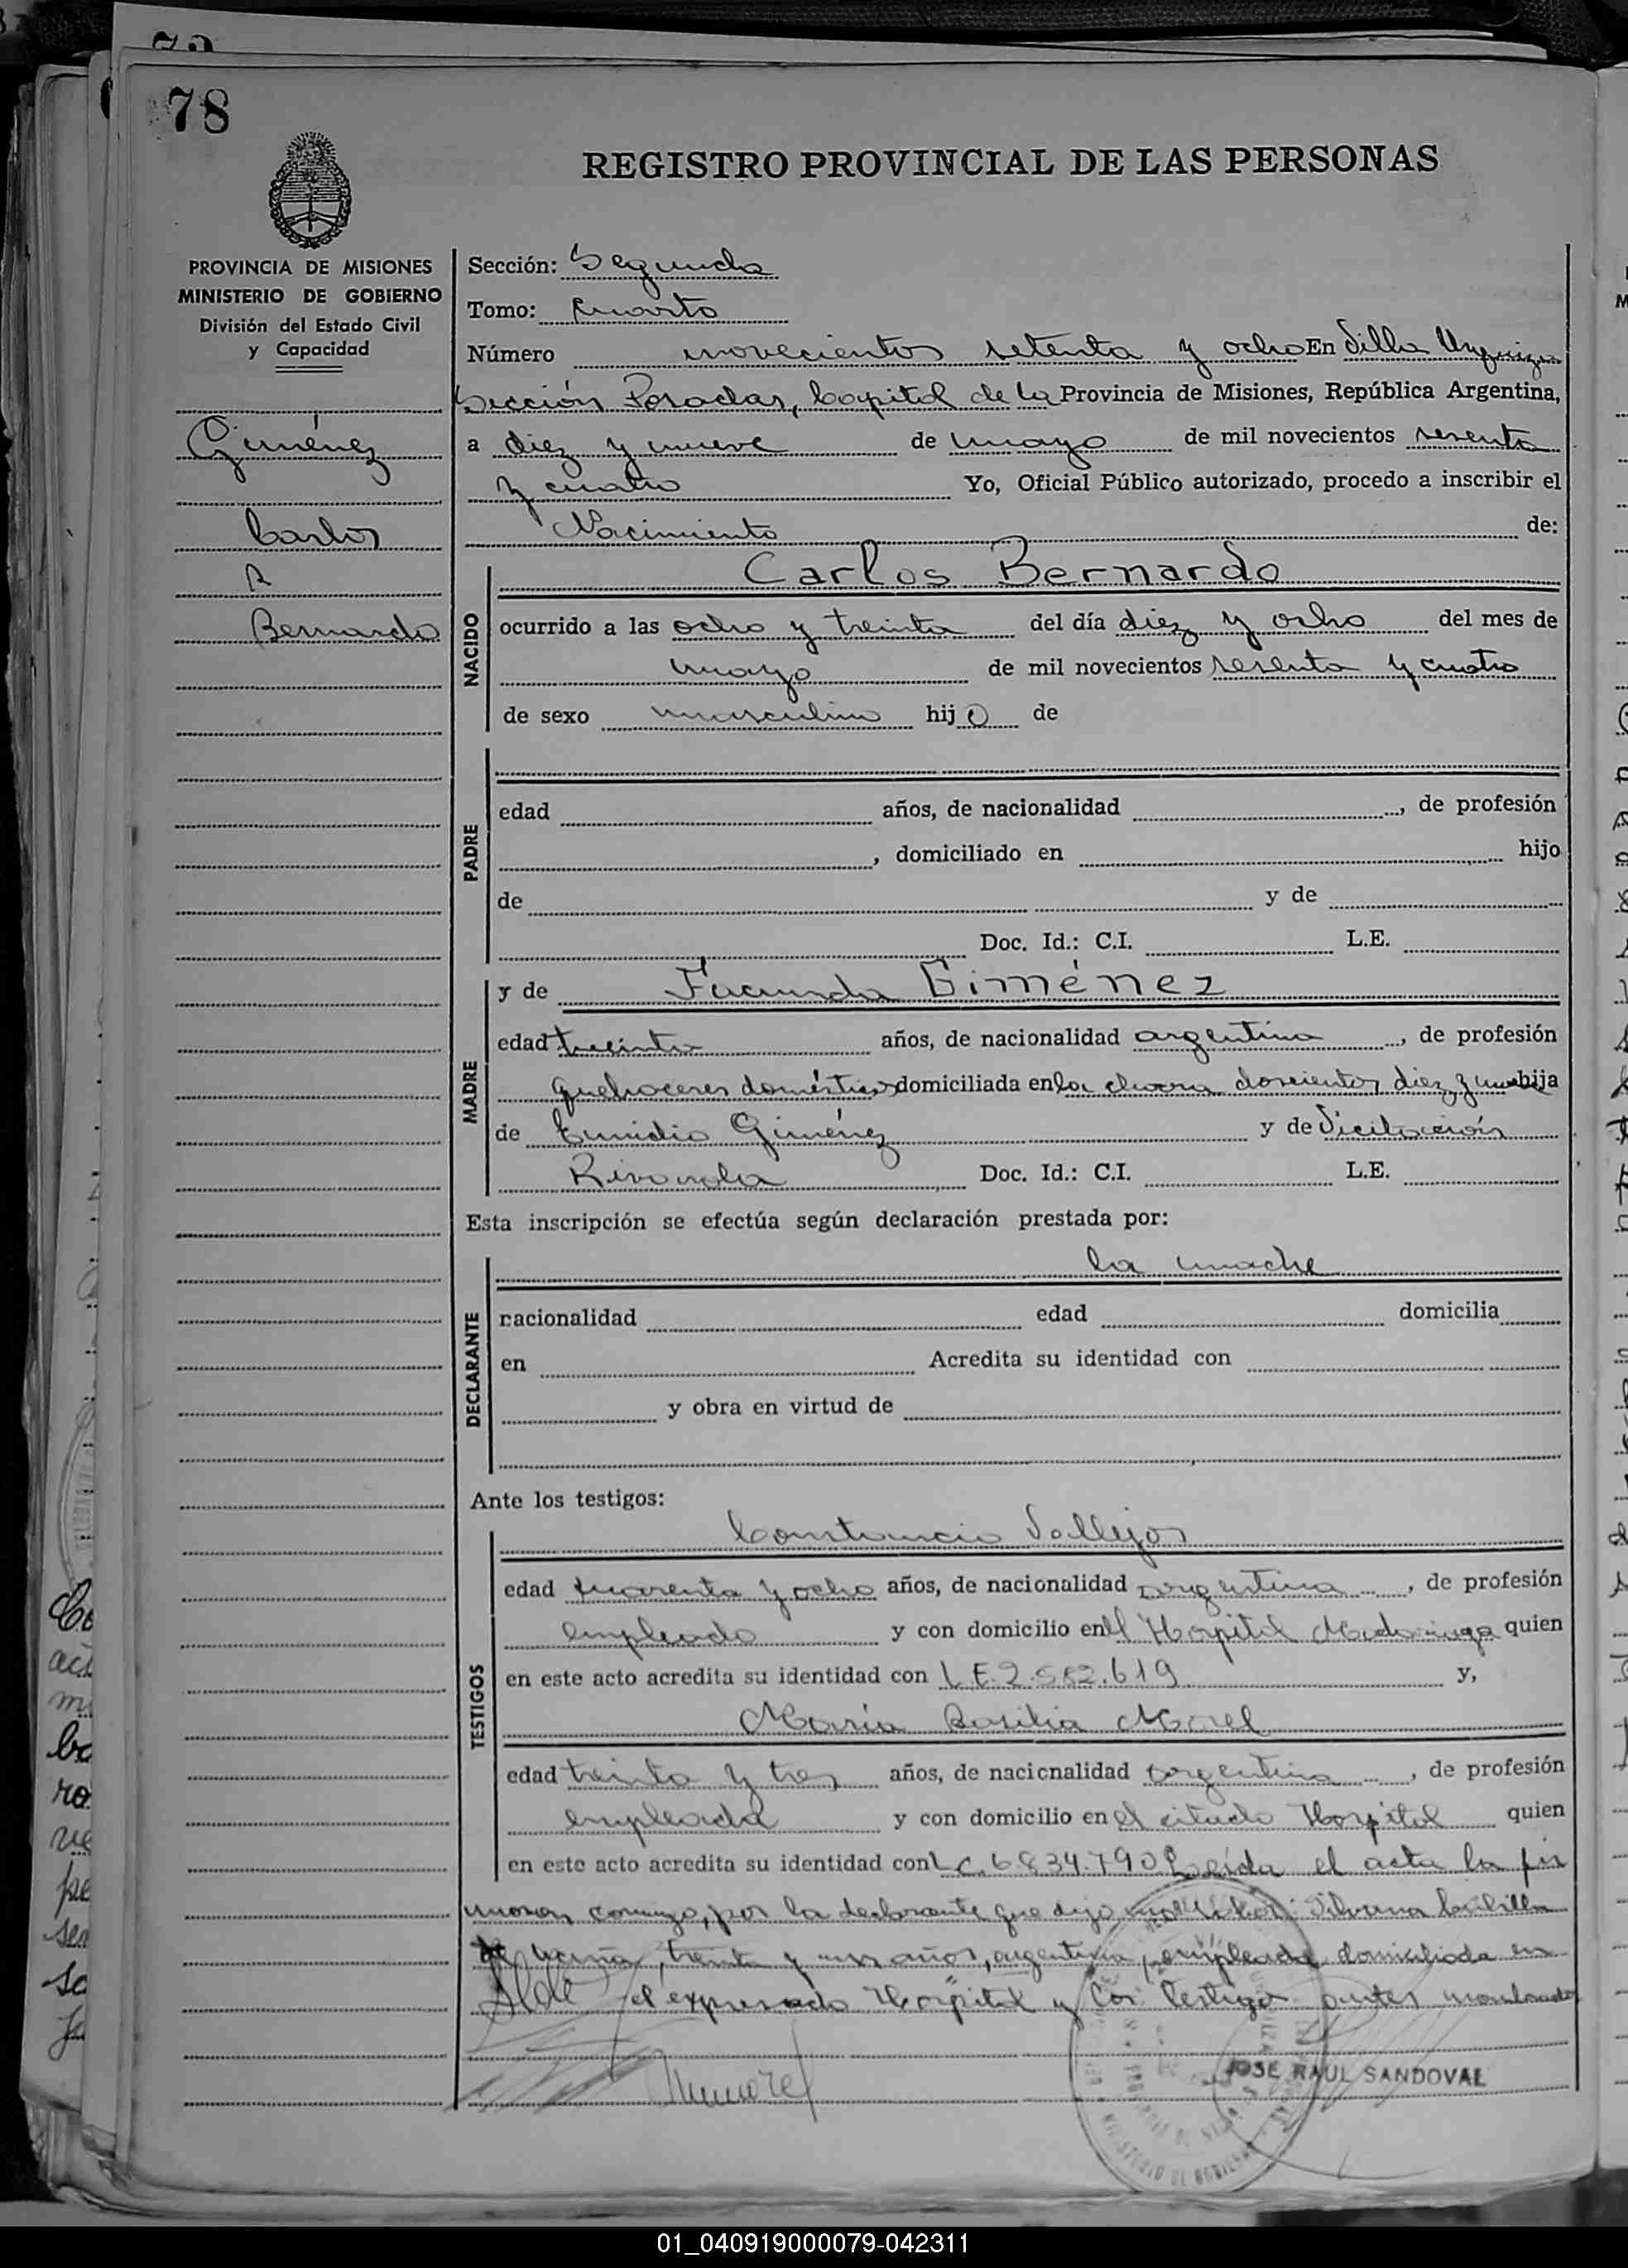 78
REGISTRO PROVINCIAL DE LAS PERSONAS
PROVINCIA DE MISIONES
MINISTERIO DE GOBIERNO
División del Estado Civil
y Capacidad
Giménez
Carlos
Bernardo
Sección: Segunda
Tomo: Cuarto
Número novecientos setenta y ocho En Villa Urquiza
Sección Posadas, Capital de la Provincia de Misiones, República Argentina,
a diez y nueve de mayo de mil novecientos sesenta
y cuatro Yo, Oficial Público autorizado, procedo a inscribir el
Nacimiento de:
NACIDO
Carlos Bernardo
ocurrido a las ocho y treinta del día diez y ocho del mes de
mayo de mil novecientos sesenta y cuatro
de sexo masculino hijo de
PADRE
edad años, de nacionalidad , de profesión
, domiciliado en hijo
de y de
Doc. Id.: C.I. L.E.
MADRE
y de Facunda Giménez
edad treinta años, de nacionalidad argentina , de profesión
quehaceres domésticos domiciliada en la chacra doscientos diez y nueve hija
de Emidio Giménez y de Visitación
Doc. Id.: C.I. L.E.
Esta inscripción se efectúa según declaración prestada por:
DECLARANTE
la madre
nacionalidad edad domicilia
en Acredita su identidad con
y obra en virtud de
Ante los testigos:
TESTIGOS
Constancio Vallejos
edad cuarenta y ocho años, de nacionalidad argentina , de profesión
empleado y con domicilio en el Hospital Madariaga quien
en este acto acredita su identidad con L.E. 2.582.619 y,
María Basilia Morel
edad treinta y tres años, de nacionalidad argentina , de profesión
empleada y con domicilio en el citado Hospital quien
en este acto acredita su identidad con L.C. 6834.790 Leída el acta la fir
maron conmigo, por la declarante que dijo Silvana
treinta y un años, argentina, empleada domiciliada en
el expresado Hospital y los testigos antes nombrados
JOSE RAUL SANDOVAL
01_040919000079-042311